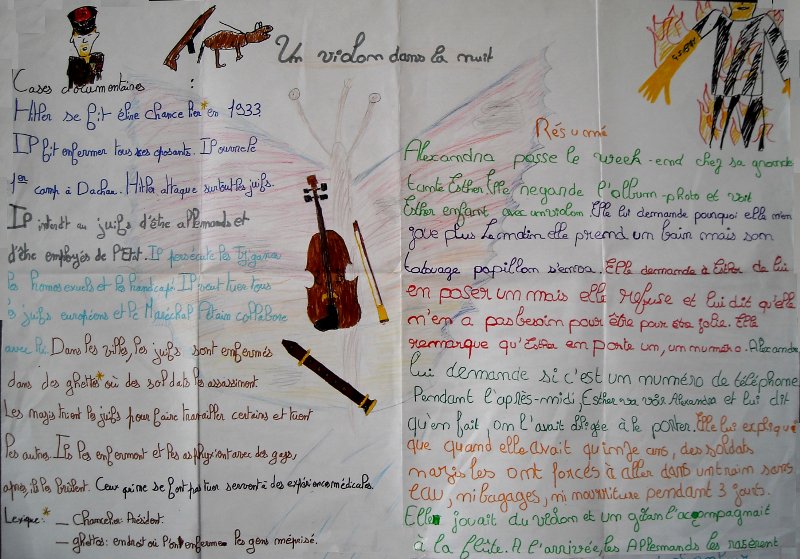 Un violon dans la nuit
Cases documentaires :
Hitler se fit élire chancelier* en 1933.
Il fit enfermer tous ses oposants. Il ouvrit le
1er camp à Dachau. Hitler attaque surtout les juifs.
Il interdit au juifs d'être allemands et
d'être employés de l'Etat. Il persécute les Tziganes
les homosexuels et les handicapé. Il veut tuer tous
les juifs européens et le Maréchal Pétain collabore
avec lui. Dans les villes, les juifs sont enfermés
dans des ghettos* où des soldats les assassinent.
Les nazis trient les juifs pour faire travailler certains et tuent
les autres. Ils les enferment et les asphyxient avec des gazs,
après, ils les brûlent. Ceux qui ne se font pas tuer servent à des expériences médicales.
Lexique:* — Chancelier: Président.
— ghettos: endroit où l'on enferme les gens méprisé.
Résumé
Alexandra passe le week-end chez sa grande
tante Esther. Elle regarde l'album-photo et voit
Esther enfant avec un violon. Elle lui demande pourquoi elle n'en
joue plus. Le matin elle prend un bain mais son
tatouage papillon s'enleva. Elle demande à Esther de lui
en poser un mais elle refuse et lui dit qu'elle
n'en a pas besoin pour être pour être jolie. Elle
remarque qu'Esther en porte un, un numéro. Alexandra
lui demande si c'est un numéro de téléphone.
Pendant l'après-midi, Esther va voir Alexandra et lui dit
qu'en fait, on l'avait obligée à le porter. Elle lui explique
que quand elle avait quinze ans, des soldats
nazis les ont forcés à aller dans un train sans
eau, ni bagages, ni nourriture pendant 3 jours.
Elle jouait du violon et un gitan l'accompagnait
à la flûte. A l'arrivée, les Allemands les rasèrent